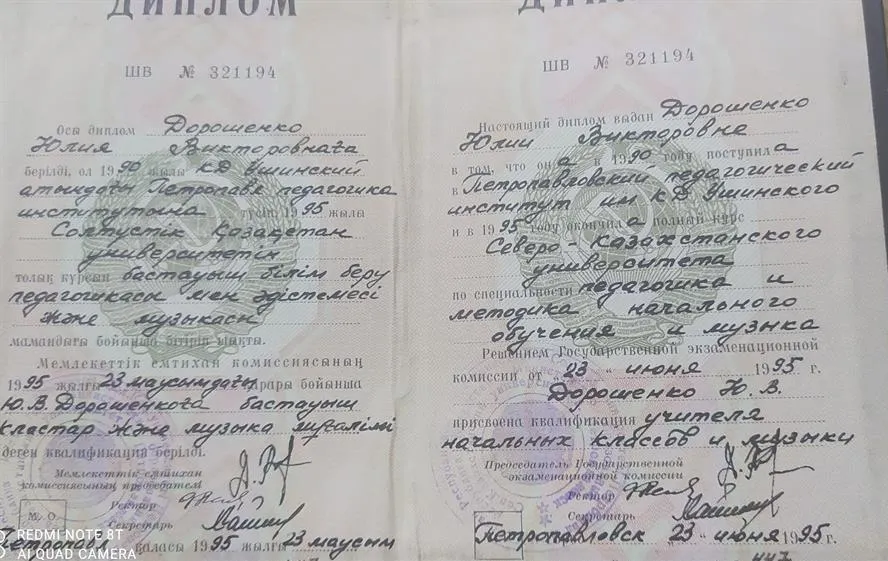 ДИПЛОМ
ШВ № 321194
Осы диплом Дорошенко
Юлия Викторовнаға
берілді, ол 1990 жылы КД Ушинский
атындағы Петропавл педагогика
институтына түсіп 1995 жылы
Солтүстік Қазақстан
университетін
толық курсын бастауыш білім беру
педагогикасы мен әдістемесі
және музыкасы
мамандығы бойынша бітіріп шықты.
Мемлекеттік емтихан комиссиясының
1995 жылғы 23 маусымдағы қарары бойынша
Ю.В. Дорошенкоға бастауыш
кластар және музыка мұғалімі
деген квалификация берілді.
Мемлекеттік емтихан
комиссиясының председателі
Ректор
Секретарь
М. О.
Петропавл қаласы 1995 жылғы 23 маусым
ДИПЛОМ
ШВ № 321194
Настоящий диплом выдан Дорошенко
Юлии Викторовне
в том, что она в 1990 году поступила
в Петропавловский педагогический
институт им КД Ушинского
и в 1995 году окончила полный курс
Северо-Казахстанского
университета
по специальности педагогика и
методика начального
обучения и музыка
Решением Государственной экзаменационной
комиссии от 23 " июня 1995 г.
Дорошенко Ю. В.
присвоена квалификация учителя
начальных классов и музыки
Председатель Государственной
экзаменационной комиссии
Ректор
Секретарь
Петропавловск 23 " июня 1995 г.
REDMI NOTE 8T
AI QUAD CAMERA